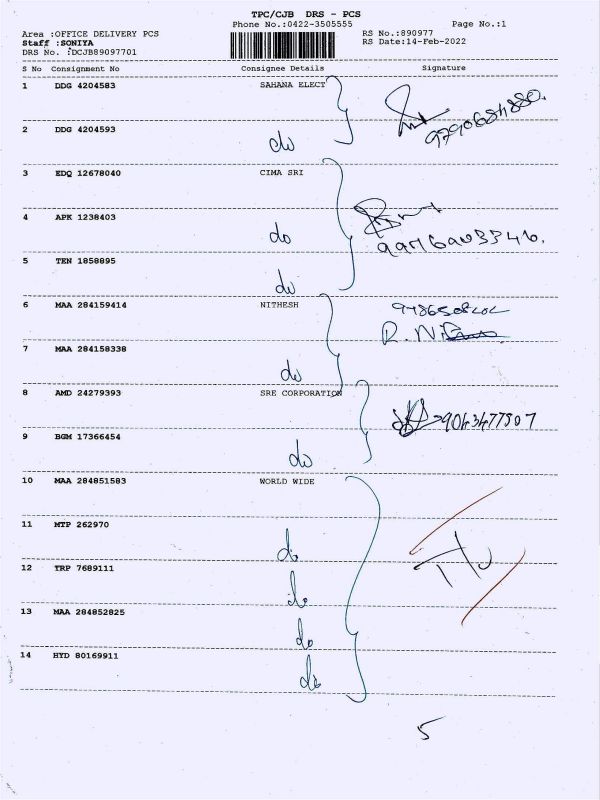 TPC/CJB DRS - PCS
Phone No.:0422-3505555
Page No.:1
Area :OFFICE DELIVERY PCS
RS No.:890977
Staff :SONIYA
RS Date:14-Feb-2022
DRS No. :DCJB89097701
S No Consignment No Consignee Details Signature
1 DDG 4204583 SAHANA ELECT
2 DDG 4204593 do
3 EDQ 12678040 CIMA SRI
4 APK 1238403 do
5 TEN 1858895 do
6 MAA 284159414 NITHESH
7 MAA 284158338 do
8 AMD 24279393 SRE CORPORATION
9043477507
9 BGM 17366454 do
10 MAA 284851583 WORLD WIDE
11 MTP 262970 do
12 TRP 7689111 do
13 MAA 284852825 do
14 HYD 80169911 do
5